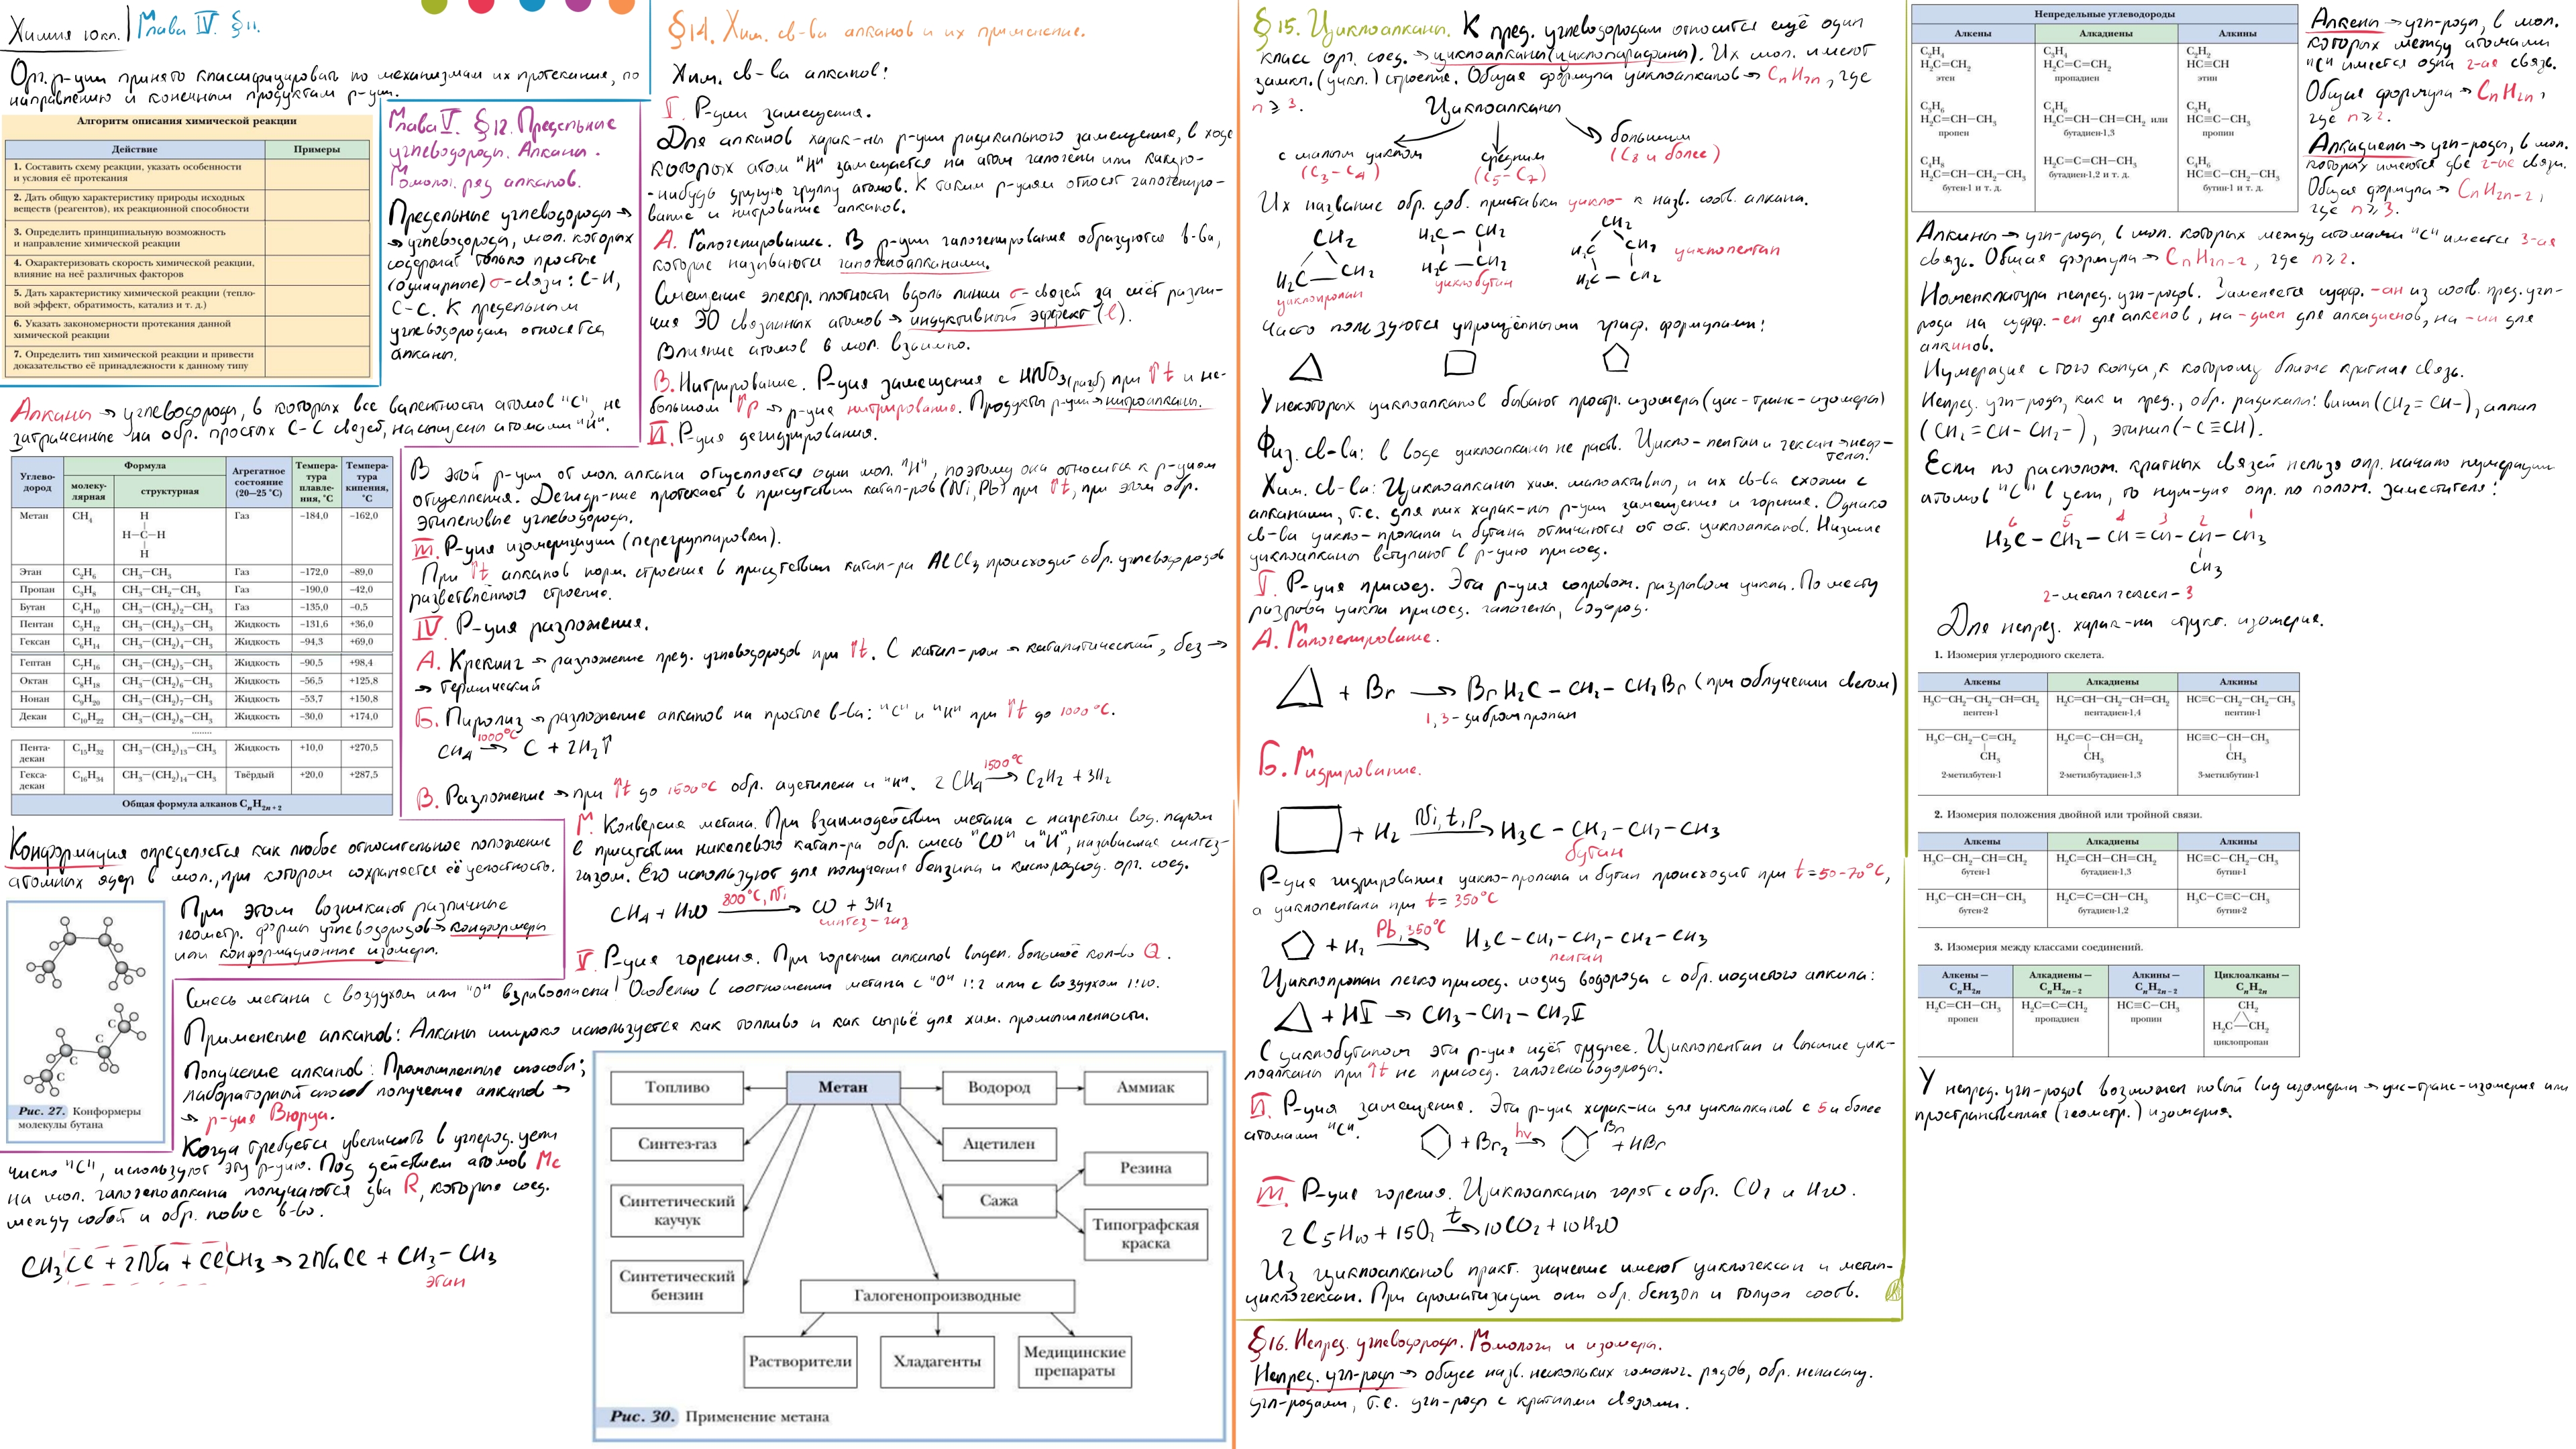 Химия 10кл. | Глава IV. §11.
Орг. р-ции принято классифицировать по механизмам их протекания, по
направлению и конечным продуктам р-ции.
Алгоритм описания химической реакции
Действие Примеры
1. Составить схему реакции, указать особенности
и условия её протекания
2. Дать общую характеристику природы исходных
веществ (реагентов), их реакционной способности
3. Определить принципиальную возможность
и направление химической реакции
4. Охарактеризовать скорость химической реакции,
влияние на неё различных факторов
5. Дать характеристику химической реакции (тепло-
вой эффект, обратимость, катализ и т. д.)
6. Указать закономерности протекания данной
химической реакции
7. Определить тип химической реакции и привести
доказательство её принадлежности к данному типу
Глава V. §12. Предельные
углеводороды. Алканы.
Гомолог. ряд алканов.
Предельные углеводороды →
→ углеводороды, мол. которых
содержат только простые
(одинарные) σ-связи: C-H,
C-C. К предельным
углеводородам относятся
алканы.
Алканы → углеводороды, в которых все валентности атомов "C", не
затраченные на обр. простых C-C связей, насыщены атомами "H".
Углево-
дород
Формула
молеку-
лярная
структурная
Агрегатное
состояние
(20—25 °C)
Темпера-
тура
плавле-
ния, °C
Темпера-
тура
кипения,
°C
Метан CH4 H Газ –184,0 –162,0
H–C–H
H
Этан C2H6 CH3—CH3 Газ –172,0 –89,0
Пропан C3H8 CH3—CH2—CH3 Газ –190,0 –42,0
Бутан C4H10 CH3—(CH2)2—CH3 Газ –135,0 –0,5
Пентан C5H12 CH3—(CH2)3—CH3 Жидкость –131,6 +36,0
Гексан C6H14 CH3—(CH2)4—CH3 Жидкость –94,3 +69,0
Гептан C7H16 CH3—(CH2)5—CH3 Жидкость –90,5 +98,4
Октан C8H18 CH3—(CH2)6—CH3 Жидкость –56,5 +125,8
Нонан C9H20 CH3—(CH2)7—CH3 Жидкость –53,7 +150,8
Декан C10H22 CH3—(CH2)8—CH3 Жидкость –30,0 +174,0
........
Пента-
декан C15H32 CH3—(CH2)13—CH3 Жидкость +10,0 +270,5
Гекса-
декан C16H34 CH3—(CH2)14—CH3 Твёрдый +20,0 +287,5
Общая формула алканов CnH2n+2
Конформация определяется как любое относительное положение
атомных ядер в мол., при котором сохраняется её целостность.
При этом возникают различные
геометр. формы углеводородов → конформеры
или конформационные изомеры.
C
C
C
C
Рис. 27. Конформеры
молекулы бутана
§14. Хим. св-ва алканов и их применение.
Хим. св-ва алканов:
I. Р-ции замещения.
Для алканов харак-ны р-ции радикального замещения, в ходе
которых атом "H" замещается на атом галогена или какую-
-нибудь другую группу атомов. К таким р-циям относят галогениро-
вание и нитрование алканов.
А. Галогенирование. В р-ции галогенирования образуются в-ва,
которые называются галогеноалканами.
Смещение электр. плотности вдоль линии σ-связей за счёт разли-
чия ЭО связанных атомов → индуктивный эффект (e).
Влияние атомов в мол. взаимно.
В. Нитрирование. Р-ция замещения с HNO3(разб) при ↑t и не-
большом ↑p → р-ция нитрирования. Продукты р-ции → нитроалканы.
II. Р-ция дегидрирования.
В этой р-ции от мол. алкана отщепляется один мол. "H", поэтому она относится к р-циям
отщепления. Дегидр-ние протекает в присутствии катал-ров (Ni, Pb) при ↑t, при этом обр.
этиленовые углеводороды.
III. Р-ция изомеризации (перегруппировки).
При ↑t алканов норм. строения в присутствии катал-ра AlCl3 происходит обр. углеводородов
разветвлённого строения.
IV. Р-ция разложения.
А. Крекинг → разложение пред. углеводородов при ↑t. С катал-ром → каталитический, без →
→ термический
Б. Пиролиз → разложение алканов на простые в-ва: "C" и "H" при ↑t до 1000°C.
CH4 1000°C → C + 2H2↑
В. Разложение → при ↑t до 1500°C обр. ацетилен и "H". 2CH4 1500°C → C2H2 + 3H2
Г. Конверсия метана. При взаимодействии метана с нагретым вод. паром
в присутствии никелевого катал-ра обр. смесь "CO" и "H", называемая синтез-
газом. Его используют для получения бензина и кислородсод. орг. соед.
CH4 + H2O 800°C, Ni → CO + 3H2
синтез-газ
V. Р-ция горения. При горении алканов выдел. большое кол-во Q.
Смесь метана с воздухом или "O" взрывоопасна! Особенно в соотношении метана с "O" 1:2 или с воздухом 1:10.
Применение алканов: Алканы широко используется как топливо и как сырьё для хим. промышленности.
Получение алканов: Промышленные способы;
лабораторный способ получение алканов →
→ р-ция Вюрца.
Когда требуется увеличить в углерод. цепи
число "C", используют эту р-цию. Под действием атомов Me
на мол. галогеноалкана получаются два R, которые соед.
между собой и обр. новое в-во.
CH3Cl + 2Na + ClCH3 → 2NaCl + CH3 – CH3
этан
Топливо Метан Водород Аммиак
Синтез-газ Ацетилен
Резина
Синтетический
каучук
Сажа
Типографская
краска
Синтетический
бензин
Галогенопроизводные
Растворители Хладагенты Медицинские
препараты
Рис. 30. Применение метана
§15. Циклоалканы. К пред. углеводородам относится ещё один
класс орг. соед. → циклоалканы (циклопарафины). Их мол. имеют
замкн. (цикл.) строение. Общая формула циклоалканов → CnH2n, где
n ≥ 3.
Циклоалканы
с малым циклом
(C3 – C4)
средним
(C5 – C7)
большим
(C8 и более)
Их название обр. доб. приставки цикло- к назв. соотв. алкана.
CH2
H2C – CH2
циклопропан
H2C – CH2
H2C – CH2
циклобутан
CH2
H2C CH2
H2C – CH2
циклопентан
Часто пользуются упрощёнными граф. формулами:
У некоторых циклоалканов бывают простр. изомеры (цис-транс-изомеры)
Физ. св-ва: в воде циклоалканы не раств. Цикло-пентан и гексан →
Хим. св-ва: Циклоалканы хим. малоактивны, и их св-ва схожи с
алканами, т.е. для них харак-ны р-ции замещения и горения. Однако
св-ва цикло-пропана и бутана отличаются от ост. циклоалканов. Низшие
циклоалканы вступают в р-цию присоед.
I. Р-ция присоед. Эта р-ция сопровож. разрывом цикла. По месту
разрыва цикла присоед. галогены, водород.
А. Галогенирование.
+ Br → BrH2C – CH2 – CH2Br (при облучении светом)
1,3-дибромпропан
Б. Гидрирование.
+ H2 Ni, t, P → H3C – CH2 – CH2 – CH3
бутан
Р-ция гидрирования цикло-пропана и бутан происходит при t = 50-70°C,
а циклопентана при t = 350°C
+ H2 Pb, 350°C → H3C – CH2 – CH2 – CH2 – CH3
пентан
Циклопропан легко присоед. иодид водорода с обр. иодистого алкила:
+ HI → CH3 – CH2 – CH2I
С циклобутаном эта р-ция идёт труднее. Циклопентан и высшие цик-
лоалканы при ↑t не присоед. галогеноводороды.
II. Р-ция замещения. Эта р-ция харак-на для циклалканов с 5 и более
атомами "C".
+ Br2 hν → Br + HBr
III. Р-ция горения. Циклоалканы горят с обр. CO2 и H2O.
2C5H10 + 15O2 t → 10CO2 + 10H2O
Из циклоалканов практ. значение имеют циклогексан и метил-
циклогексан. При ароматизации они обр. бензол и толуол соотв.
§16. Непред. углеводороды. Гомологи и изомеры.
Непред. угл-роды → общее назв. нескольких гомолог. рядов, обр. ненасыщ.
угл-родами, т.е. угл-роды с кратными связями.
Непредельные углеводороды
Алкены Алкадиены Алкины
C2H4 C3H4 C2H2
H2C=CH2 H2C=C=CH2 HC≡CH
этен пропадиен этин
C3H6 C4H6 C3H4
H2C=CH—CH3 H2C=CH—CH=CH2 или HC≡C—CH3
пропен бутадиен-1,3 пропин
C4H8 H2C=C=CH—CH3 C4H6
H2C=CH—CH2—CH3 бутадиен-1,2 и т. д. HC≡C—CH2—CH3
бутен-1 и т. д. бутин-1 и т. д.
Алкены → угл-роды, в мол.
которых между атомами
"C" имеется одна 2-ая связь.
Общая формула → CnH2n,
где n ≥ 2.
Алкадиены → угл-роды, в мол.
которых имеются две 2-ые связи.
Общая формула → CnH2n-2,
где n ≥ 3.
Алкины → угл-роды, в мол. которых между атомами "C" имеется 3-ая
связь. Общая формула → CnH2n-2, где n ≥ 2.
Номенклатура непред. угл-родов. Заменяется суфф. -ан из соотв. пред. угл-
рода на суфф. -ен для алкенов, на -диен для алкадиенов, на -ин для
алкинов.
Нумерация с того конца, к которому ближе кратная связь.
Непред. угл-роды, как и пред., обр. радикалы: винил (CH2 = CH-), аллил
(CH2 = CH - CH2 -), этинил (- C ≡ CH).
Если по располож. кратных связей нельзя опр. начало нумерации
атомов "C" в цепи, то нум-ция опр. по полож. заместителя:
6 5 4 3 2 1
H3C – CH2 – CH = CH – CH – CH3
CH3
2-метилгексен-3
Для непред. харак-на структ. изомерия.
1. Изомерия углеродного скелета.
Алкены Алкадиены Алкины
H3C—CH2—CH2—CH=CH2 H2C=CH—CH2—CH=CH2 HC≡C—CH2—CH2—CH3
пентен-1 пентадиен-1,4 пентин-1
H3C—CH2—C=CH2 H2C=C—CH=CH2 HC≡C—CH—CH3
CH3 CH3 CH3
2-метилбутен-1 2-метилбутадиен-1,3 3-метилбутин-1
2. Изомерия положения двойной или тройной связи.
Алкены Алкадиены Алкины
H3C—CH2—CH=CH2 H2C=CH—CH=CH2 HC≡C—CH2—CH3
бутен-1 бутадиен-1,3 бутин-1
H3C—CH=CH—CH3 H2C=C=CH—CH3 H3C—C≡C—CH3
бутен-2 бутадиен-1,2 бутин-2
3. Изомерия между классами соединений.
Алкены — Алкадиены — Алкины — Циклоалканы —
CnH2n CnH2n–2 CnH2n–2 CnH2n
H2C=CH—CH3 H2C=C=CH2 HC≡C—CH3 CH2
пропен пропадиен пропин H2C—CH2
циклопропан
У непред. угл-родов возможен новый вид изомерии → цис-транс-изомерия или
пространственная (геометр.) изомерия.